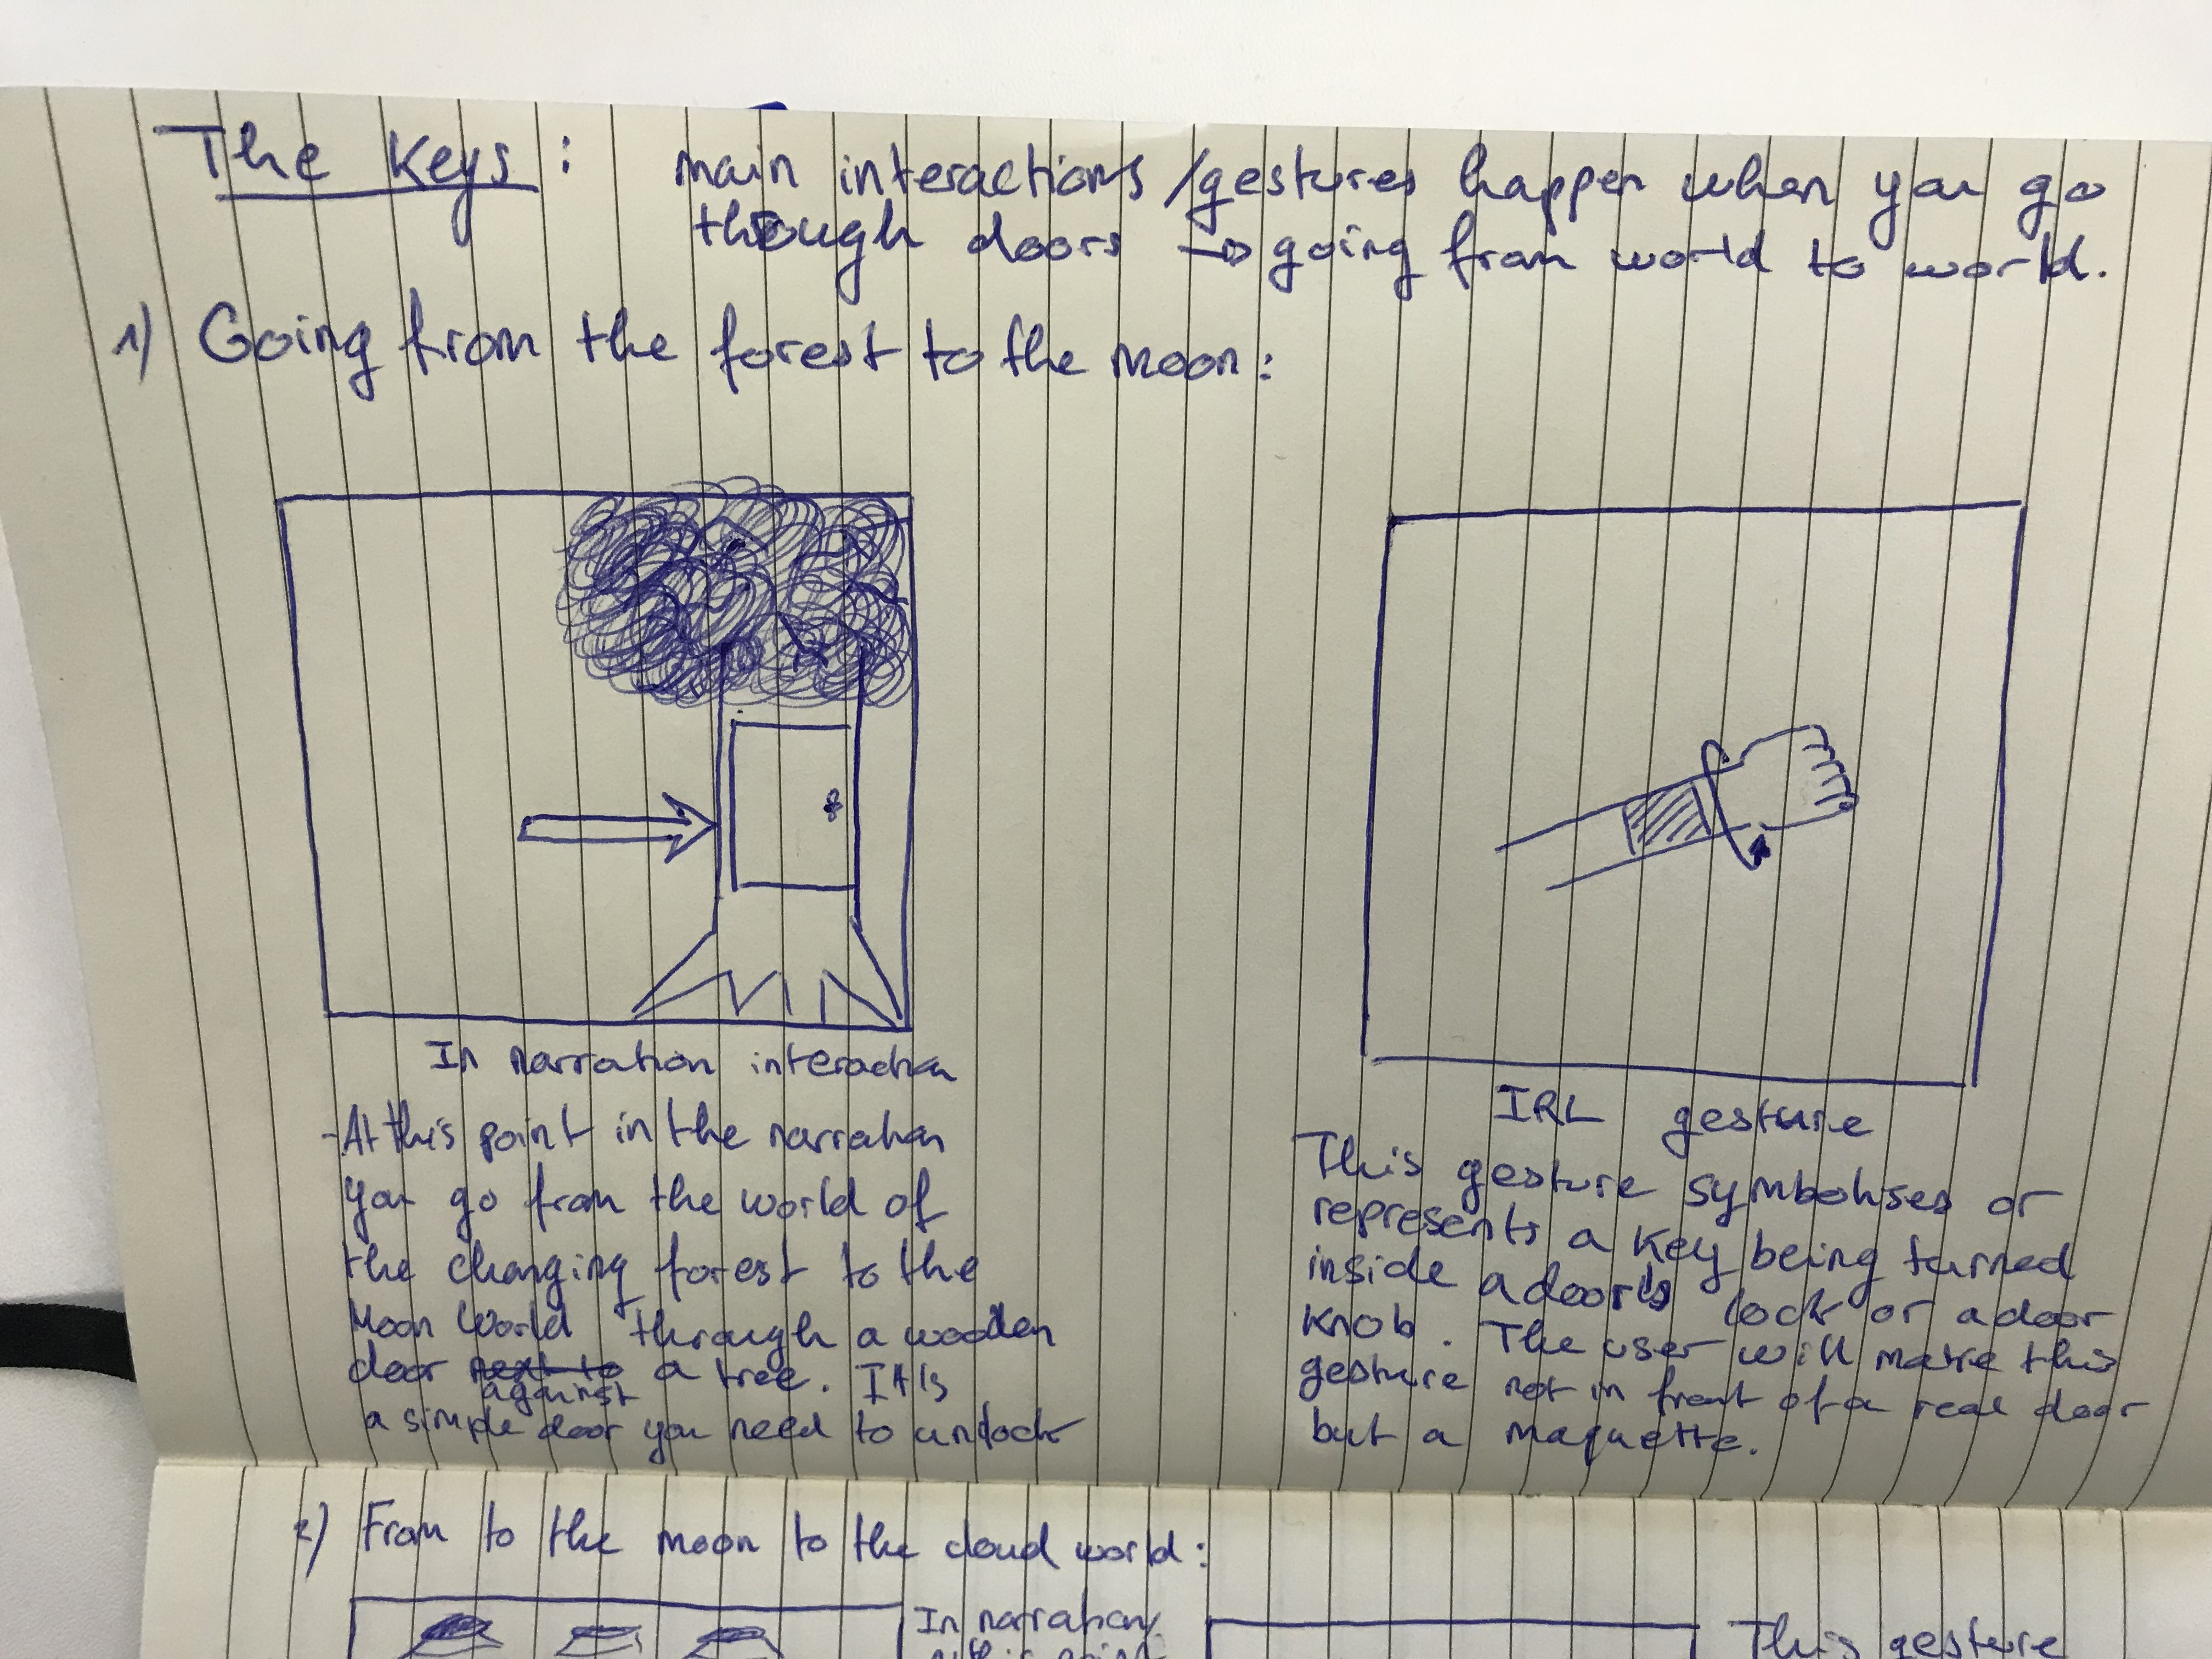 The Keys: main interactions/gestures happen when you go
through doors → going from world to world.
1) Going from the forest to the moon:
In narration interaction
- At this point in the narration
you go from the world of
the changing forest to the
Moon World through a wooden
door next to against a tree. This
a simple door you need to unlock
IRL gesture
This gesture symbolises or
represents a key being turned
inside a doors lock or a door
knob. The user will make this
gesture not in front of a real door
but a maquette.
2) From to the moon to the cloud world:
In narration:
This gesture